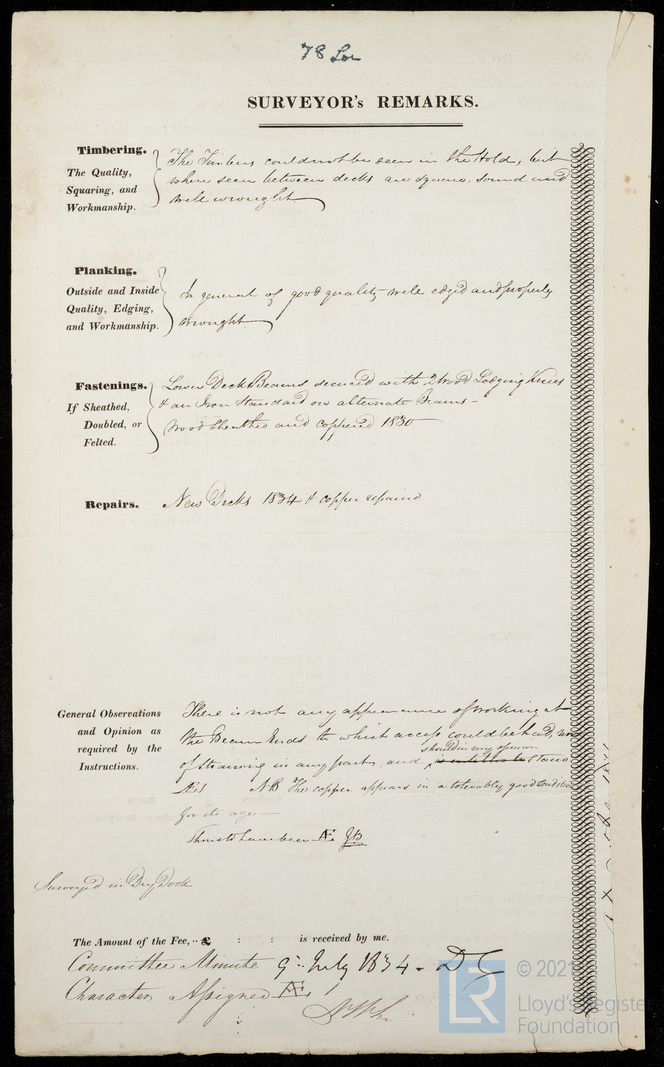 78 Lon
SURVEYOR's REMARKS.
Timbering.
The Quality,
Squaring, and
Workmanship.
The Timbers could not be seen in the Hold, but
when seen between decks are square sound and
well wrought
Planking.
Outside and Inside
Quality, Edging,
and Workmanship.
In general of good quality well edged and properly
wrought
Fastenings.
If Sheathed,
Doubled, or
Felted.
Lower Deck Beams secured with 2 Wood Lodging Knees
& an Iron Standard on alternate Beams-
Wood Sheathed and coppered 1830
Repairs.
New Decks 1834 & copper repaired
General Observations
and Opinion as
required by the
Instructions.
There is not any appearance of working at
the Beam Ends to which access could be had, nor
should in my opinion
of straining in any part, and stand
NB The copper appears in a tolerably good condition
for its age-
Æ
Surveyed in Dry Dock
The Amount of the Fee, ·· £ : : is received by me.
Committee Minute 9th July 1834 -
Character Assigned Æ1
LR
© 2021
Lloyd's Register
Foundation